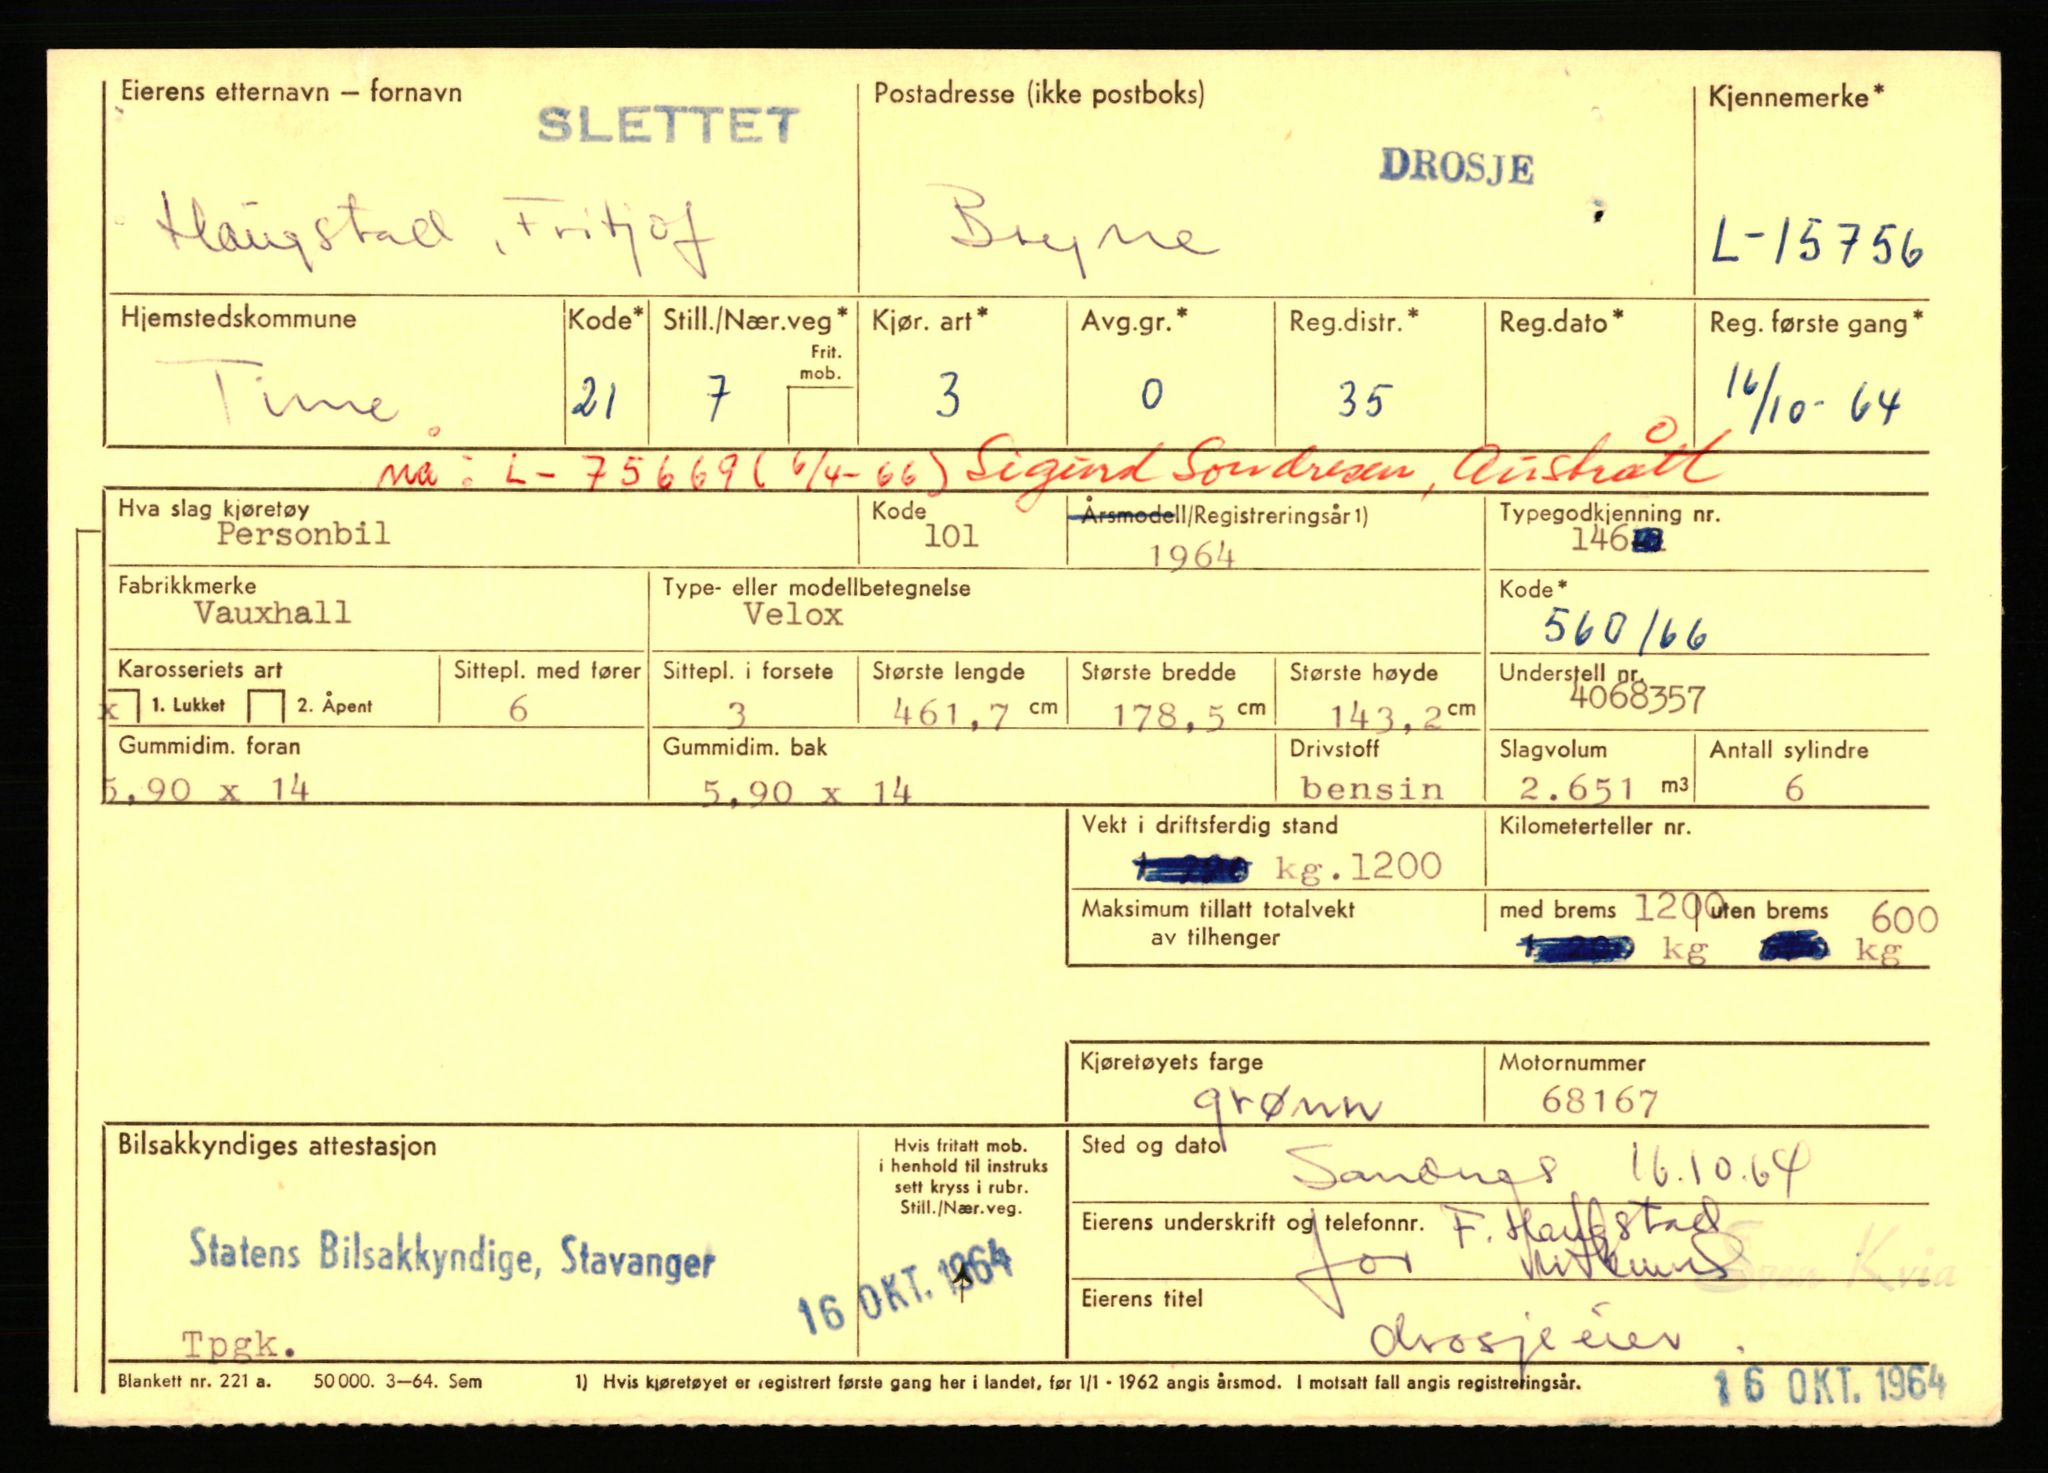 Eierens etternavn – fornavn Postadresse (ikke postboks) Kjennemerke*
SLETTET
DROSJE
Haugstad, Fritjof Bryne L-15756
Hjemstedskommune Kode* Still./Nær.veg* Kjør. art* Avg.gr.* Reg.distr.* Reg.dato* Reg. første gang*
Frit.
mob.
Time 21 7 3 0 35 16/10-64
nå: L-75669 (6/4-66) Sigurd Sondresen, Austrått
Hva slag kjøretøy Kode Årsmodell/Registreringsår1) Typegodkjenning nr.
Personbil 101 1964 146
Fabrikkmerke Type- eller modellbetegnelse Kode*
Vauxhall Velox 560/66
Karosseriets art Sittepl. med fører Sittepl. i forsete Største lengde Største bredde Største høyde Understell nr.
x 1. Lukket 2. Åpent 6 3 461,7 cm 178,5 cm 143,2 cm 4068357
Gummidim. foran Gummidim. bak Drivstoff Slagvolum Antall sylindre
5,90 x 14 5,90 x 14 bensin 2.651 m3 6
Vekt i driftsferdig stand Kilometerteller nr.
kg.1200
Maksimum tillatt totalvekt med brems 1200 uten brems 600
av tilhenger kg kg
Kjøretøyets farge Motornummer
grønn 68167
Bilsakkyndiges attestasjon Hvis fritatt mob.
i henhold til instruks
sett kryss i rubr.
Still./Nær.veg.
Sted og dato
Sandnes 16.10.64
Eierens underskrift og telefonnr. F. Haugstad
for Kvia
Statens Bilsakkyndige, Stavanger
16 OKT. 1964
Eierens titel
drosjeeier.
Tpgk.
Blankett nr. 221 a. 50 000. 3–64. Sem 1) Hvis kjøretøyet er registrert første gang her i landet, før 1/1 - 1962 angis årsmod. I motsatt fall angis registreringsår.
16 OKT. 1964